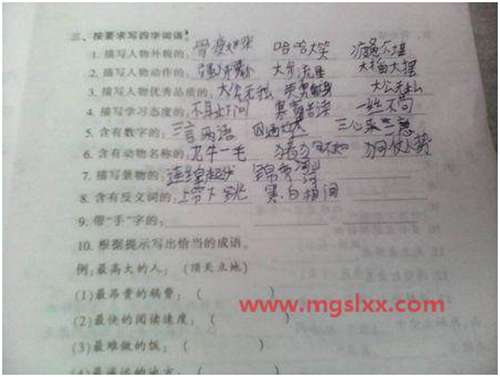 三、按要求写四字词语。
1. 描写人物外貌的: 骨瘦如柴 哈哈大笑
2. 描写人物动作的: 大步流星 大摇大摆
3. 描写人物优秀品质的: 大公无私 大公无私
4. 描写学习态度的: 不耳下问 寒窗苦读
5. 含有数字的: 三言两语 四通 三心 二意
6. 含有动物名称的: 九牛一毛 狗仗人势
7. 描写景物的: 连绵起伏
8. 含有反义词的: 上 下 黑白相间
9. 带“手”字的:
10. 根据提示写出恰当的成语。
例:最高大的人: (顶天立地)
(1)最昂贵的稿费: (
(2)最快的阅读速度: (
(3)最难做的饭: (
www.mgslxx.com
(4)最遥远的地方: (